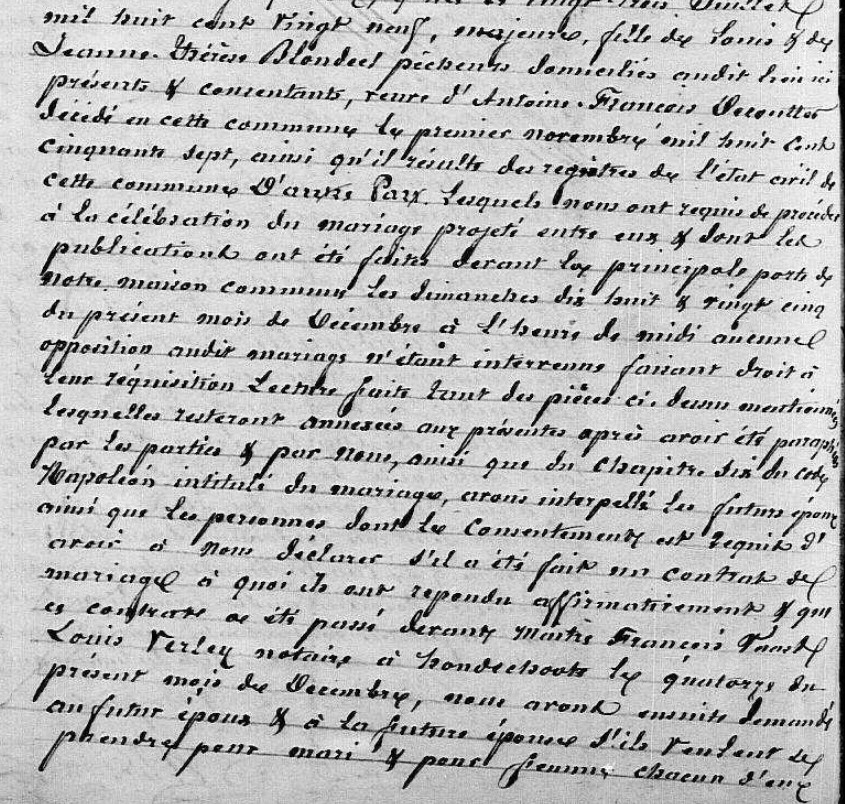 vingt trois Juillet
mil huit cent vingt neuf, majeure, fille de Louis & de
Jeanne Thérèse Blondeel pêcheurs domiciliés audit lieu ici
présents & consentants, veuve d'Antoine François Decoutter
décédé en cette commune le premier novembre mil huit cent
cinquante sept, ainsi qu'il résulte des registres de l'état civil de
cette commune D'autre Part. Lesquels nous ont requis de procéder
à la célébration du mariage projeté entre eux & dont les
publications ont été faites devant la principale porte de
notre maison commune les dimanches dix huit & vingt cinq
du présent mois de Décembre à l'heure de midi aucune
opposition audit mariage n'étant intervenue faisant droit à
leur réquisition Lecture faite tant des pièces ci-dessus mentionnées
lesquelles resteront annexées aux présentes après avoir été paraphées
par les parties & par nous, ainsi que du chapitre six du code
Napoléon intitulé du mariage, avons interpellé les futurs époux
ainsi que les personnes dont le Consentement est requis d'
avoir à nous déclarer s'il a été fait un contrat de
mariage à quoi ils ont repondu affirmativement & que
ce contrat a été passé devant Maitre François Vaast
Louis Verley notaire à hondschoote le quatorze du
présent mois de Decembre, nous avons ensuite demandé
au futur époux & à la future épouse s'ils veulent se
prendre pour mari & pour femme chacun d'eux